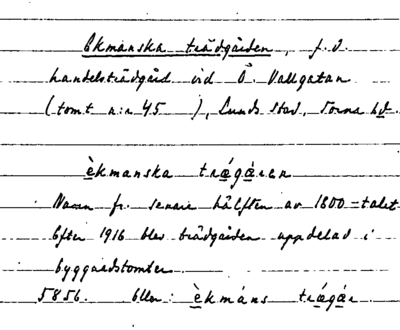 Ekmanska trädgården, f.d.
handelsträdgård vid Ö. Vallgatan
(tomt n:r 45 ), Lunds stad, Torna hd.
èkmanska trægå̀ren
Namn fr. senare hälften av 1800-talet
Efter 1916 blev trädgården uppdelad i
byggnadstomter
5856. Eller: èkmáns trægår